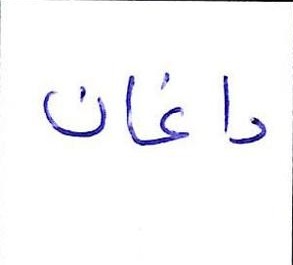 داغان